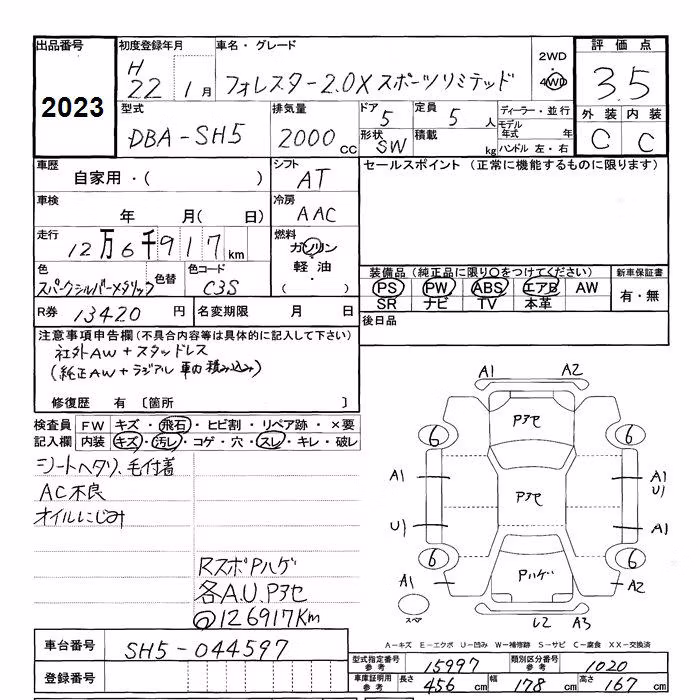 出品番号
2023
初度登録年月
H 22 1 月
車名・グレード
フォレスター2.0Xスポーツリミテッド
2WD
・
4WD
評価点
3.5
外装 内装
C C
型式
DBA-SH5
排気量
2000 cc
ドア 5
形状 SW
定員 5 人
積載 kg
ディーラー・並行
モデル年式 年
ハンドル 左・右
車歴
自家用・( )
シフト
AT
セールスポイント (正常に機能するものに限ります)
車検
年 月( 日)
冷房
AAC
走行
12万6千917km
燃料
ガソリン
軽油
・
( )
色
スパークシルバーメタリック
色替
色コード
C3S
装備品(純正品に限り○をつけてください)
PS PW ABS エアB AW
SR ナビ TV 本革
新車保証書
有・無
R券 13420 円
名変期限 月 日
後日品
注意事項申告欄(不具合内容等は具体的に記入して下さい)
社外AW+スタッドレス
(純正AW+ラジアル 車内積み込み)
修復歴 有 〔箇所 〕
検査員記入欄
FW キズ・飛石・ヒビ割・リペア跡・×要
内装 キズ・汚レ・コゲ・穴・スレ・キレ・破レ
シートヘタリ、毛付着
AC不良
オイルにじみ
RスポPハゲ
各A.U.Pヌセ
@126917Km
A1 A2
Pヌセ
6 6
A1 Pヌセ A1
U1
U1 A1
6 6
A1 Pハゲ A2
スペア
U2 A3
A-キズ E-エクボ U-凹み W-補修跡 S-サビ C-腐食 XX-交換済
車台番号 SH5-044597
登録番号
型式指定番号 参考 15997
類別区分番号 参考 1020
車庫証明用 参考 長さ 456 cm 幅 178 cm 高さ 167 cm